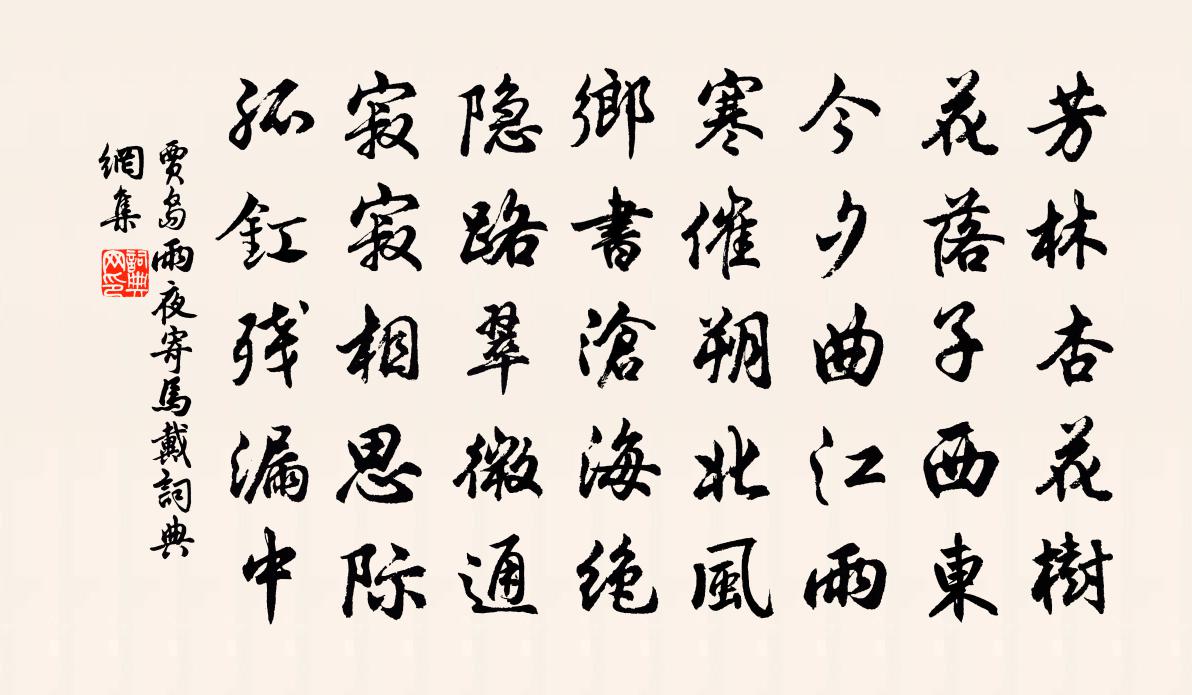 芳林杏花樹
花落子西東
今夕曲江雨
寒催朔北風
鄉書滄海絶
隐路翠微通
寂寂相思际
孤釭残漏中
賈島雨夜寄馬戴詞典
網集
詞典
网印